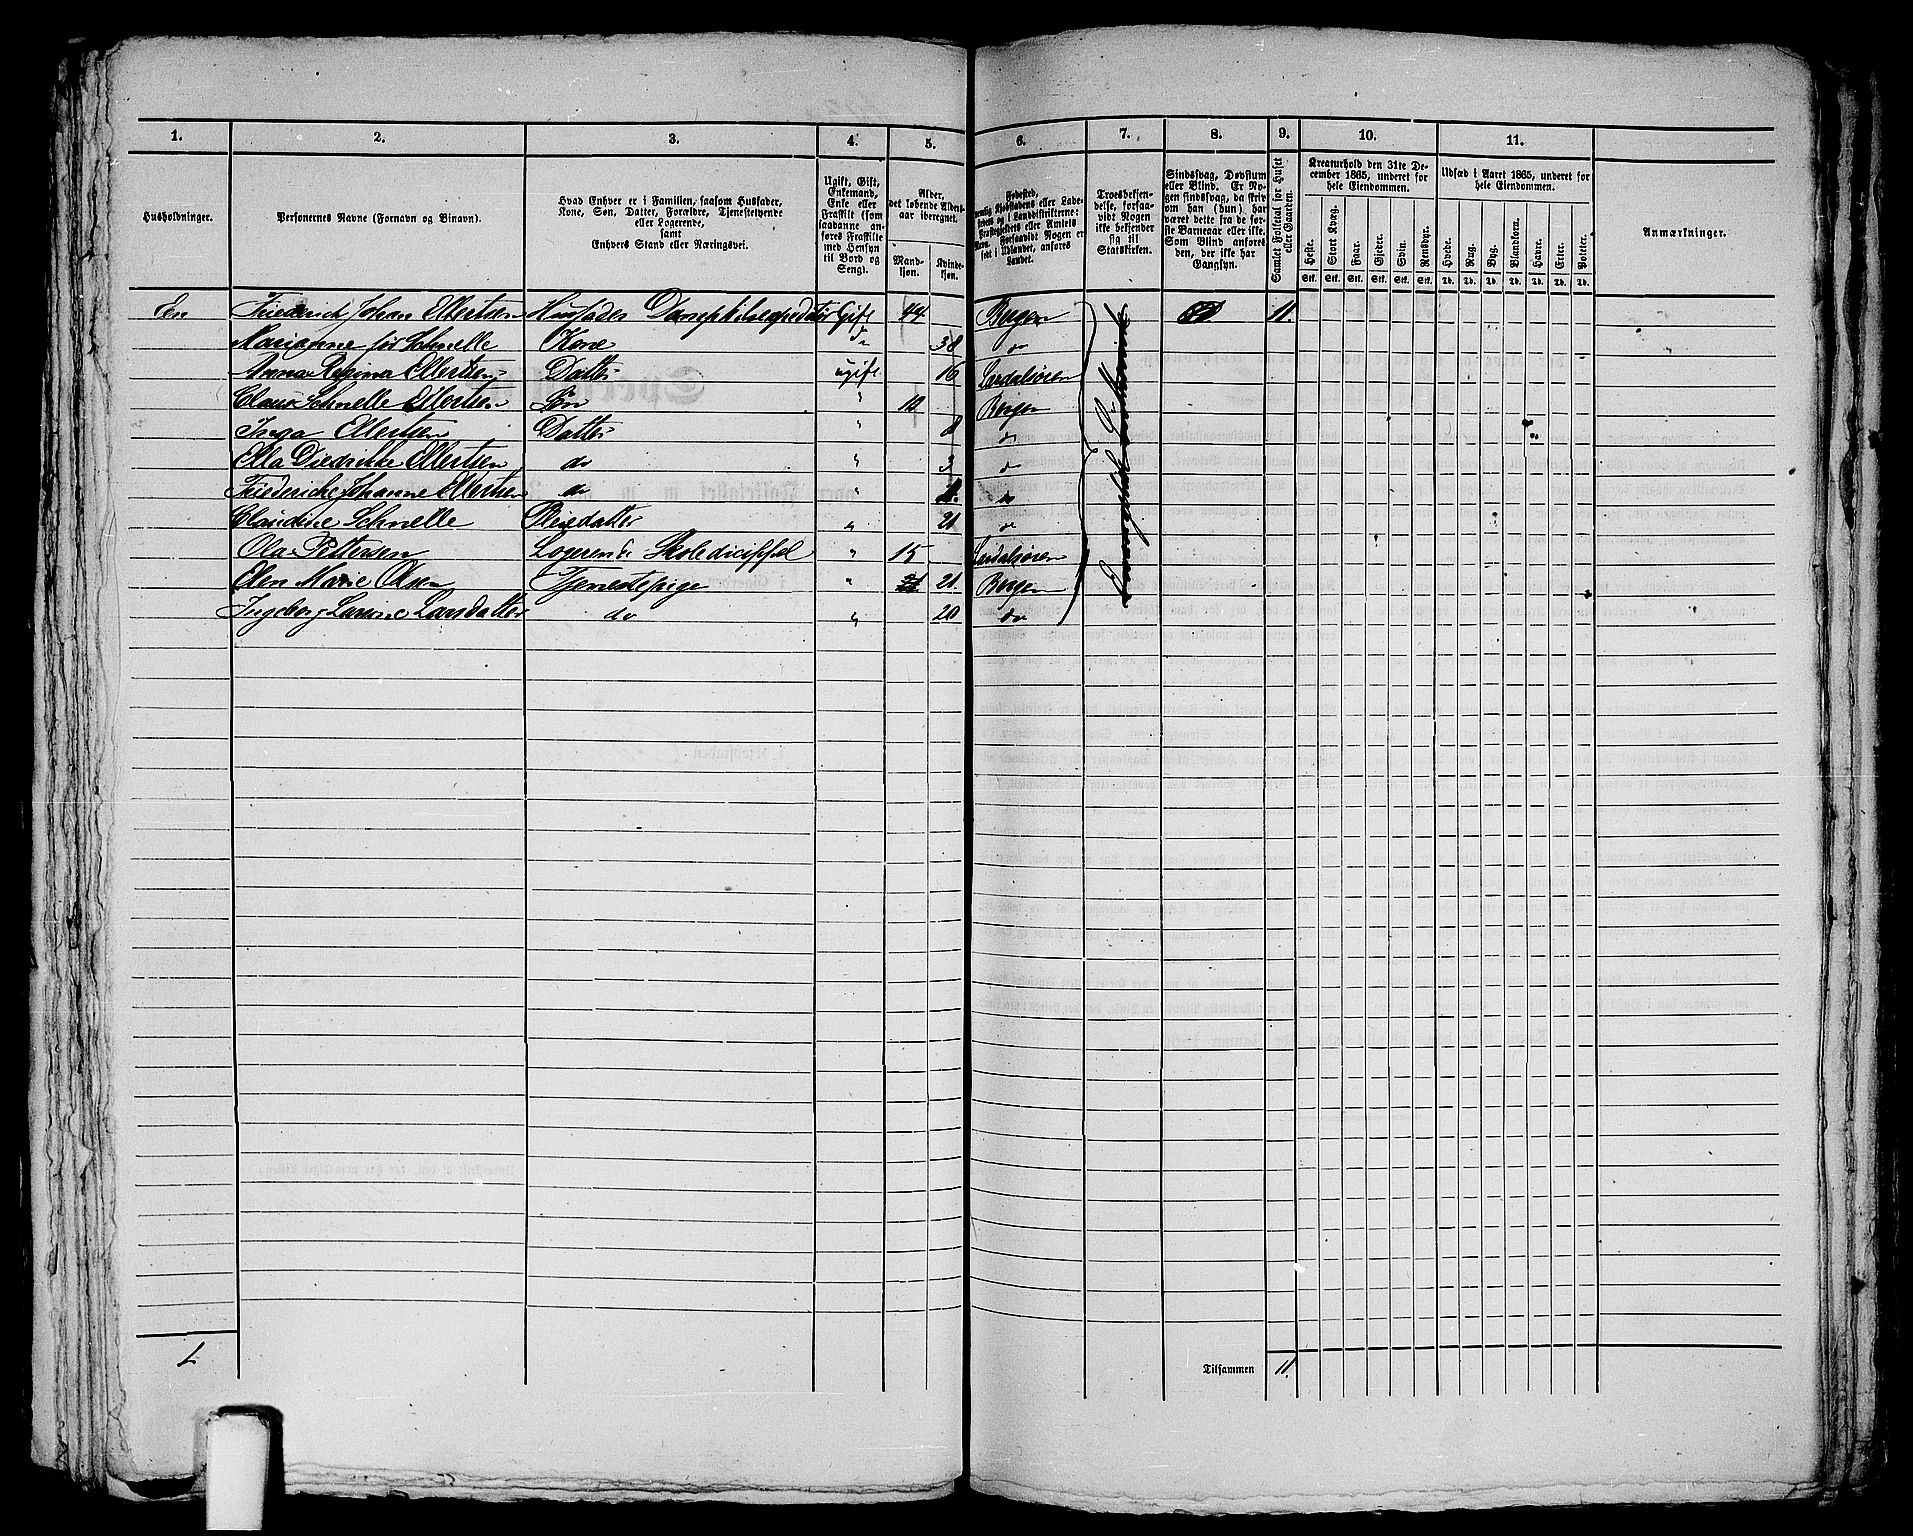 1. 2. 3. 4. 5. 6. 7. 8. 9. 10. 11.
Husholdninger.
Personernes Navne (Fornavn og Binavn).
Hvad Enhver er i Familien, saasom Husfader,
Kone, Søn, Datter, Forældre, Tjenestetyende
eller Logerende,
samt
Enhvers Stand eller Næringsvei.
Ugift, Gift,
Enkemand,
Enke eller
Fraskilt (som
saadanne an-
føres Fraskilte
med Hensyn
til Bord og
Seng).
Alder,
det løbende Alders-
aar iberegnet.
Mand-
kjøn.
Kvinde-
kjøn.
Fødested,
Præstegjeldets eller Amtets
Navn. Forsaavidt Nogen er
født i Udlandet, anføres
Landet.
Troesbekjen-
delse, forsaa-
vidt Nogen
ikke bekjender
sig til
Statskirken.
Sindssvag, Døvstum
eller Blind. Er No-
gen sindssvag, da skriv
om han (hun) har
været dette fra de før-
ste Barneaar eller ikke.
Som Blind anføres
den, der ikke har
Gangsyn.
Samlet Folketal for Huset
eller Gaarden.
Kreaturhold den 31te De-
cember 1865, underet for
hele Eiendommen.
Heste. Stort Kvæg. Faar. Gjeder. Svin. Rensdyr.
Stk. Stk. Stk. Stk. Stk. Stk.
Udsæd i Aaret 1865, underet for
hele Eiendommen.
Hvede. Rug. Byg. Blandkorn. Havre. Erter. Poteter.
Td. Td. Td. Td. Td. Td. Td.
Anmærkninger.
En Friederich Johan Ellertsen Husfader Dampskibsexpeditør Gift 44 Bergen 11.
Marianne før Schnelle Kone do 38 do
Anna Regina Ellertsen Datter ugift 16 Lærdalsøren
Claus Schnelle Ellertsen Søn " 12 Bergen
Inga Ellertsen Datter " 8 do
Ella Diedrikke Ellertsen do " 3 do
Friederiche Johanne Ellertsen do " do
Claudine Schnelle " 21 do
Ola Pettersen Logerende Skoledicippel " 15 Lærdalsøren
Elen Marie Olsen Tjenestepige " 21. Bergen
Ingeborg Larsdatter do " 20 do
1
Tilsammen 11.